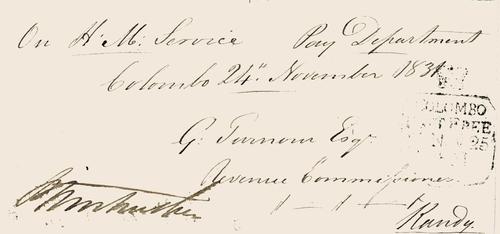 On H. M: Service Pay Department
Colombo 24th November 1831
COLOMBO
POST FREE
25
G. Turnour Esqr
Revenue Commissioner
Kandy.